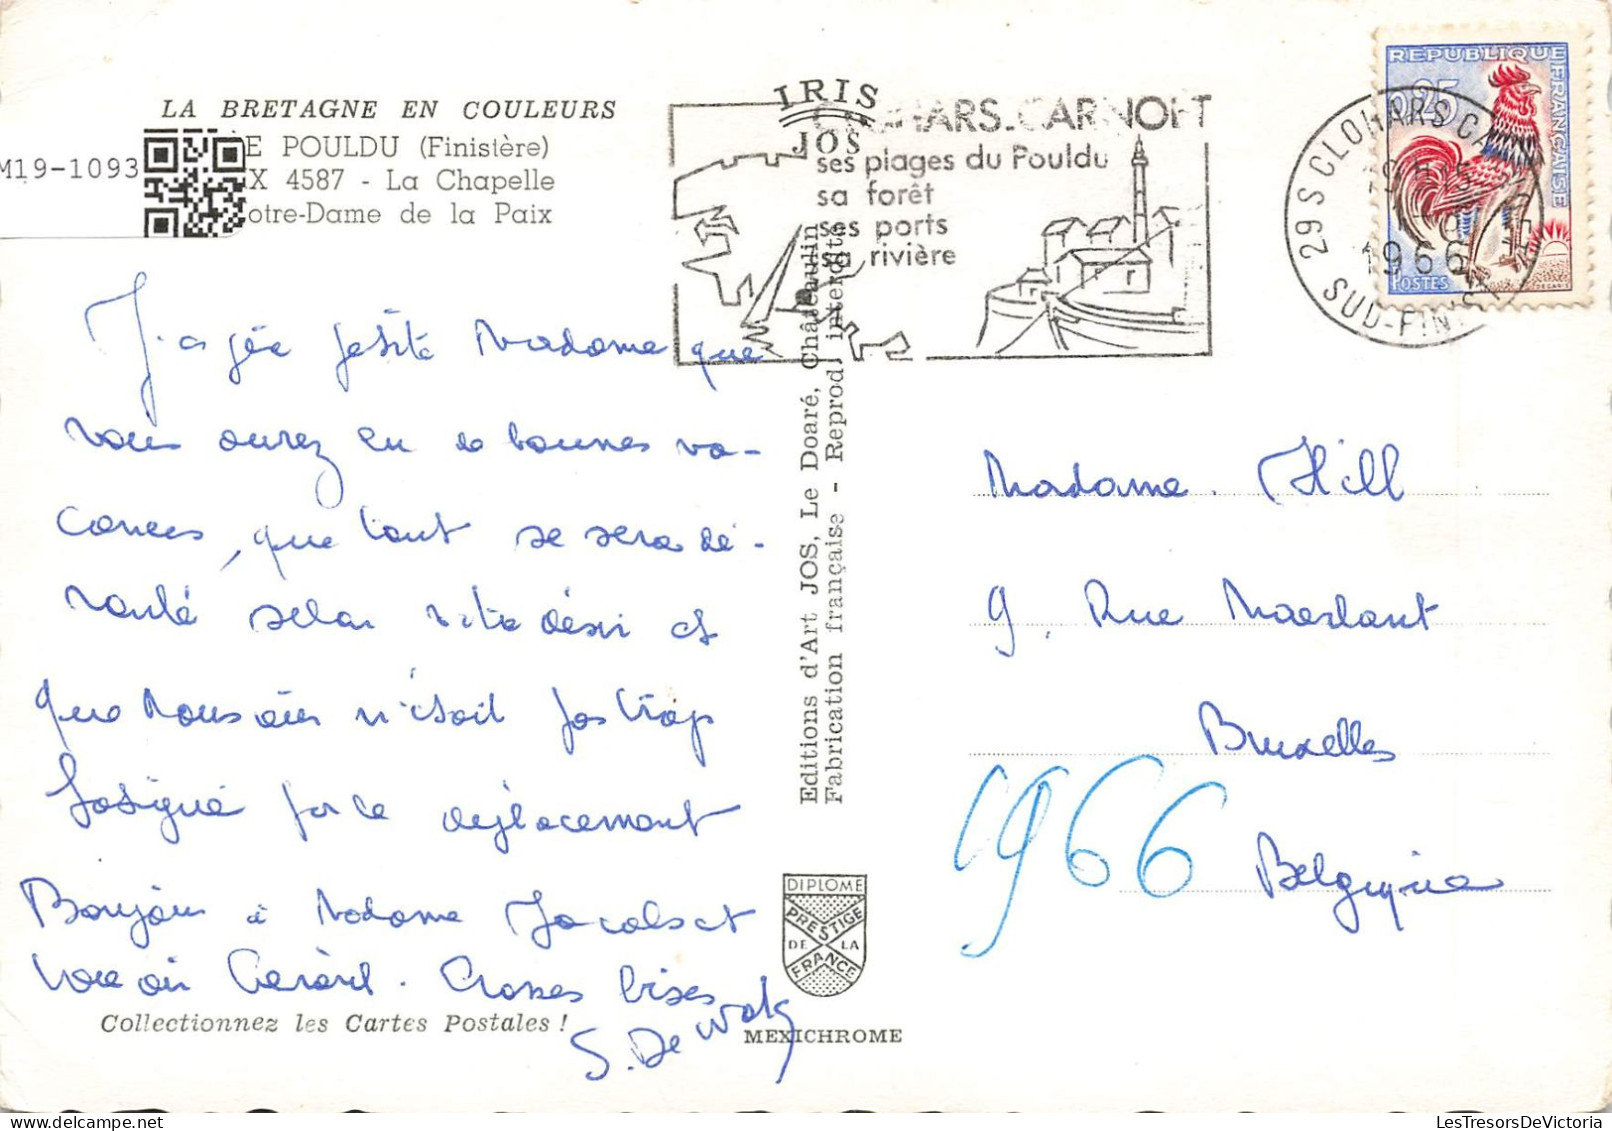 LA BRETAGNE EN COULEURS
E POULDU (Finistère)
M19-1093
X 4587 - La Chapelle
otre-Dame de la Paix
IRIS
JOS
CLOHARS-CARNOET
ses plages du Pouldu
sa forêt
ses ports
sa rivière
REPUBLIQUE FRANÇAISE
0,25
POSTES
29 S CLOHARS CARNOET
1966
SUD-FINISTERE
Madame que
vous aurez eu de bonnes va-
cances, que tout se sera dé-
roulé selon votre désir et
que Monsieur n'était pas trop
fatigué par le déplacement
Bonjour à Madame
Gérard. Grosses bises
S. De
Collectionnez les Cartes Postales !
Editions d'Art JOS, Le Doaré, Châteaulin
Fabrication française - Reprod. interdite
DIPLOME
PRESTIGE
DE LA
FRANCE
MEXICHROME
Madame Hill
9, Rue Maerlant
Bruxelles
1966
Belgique
LesTresorsDeVictoria.com